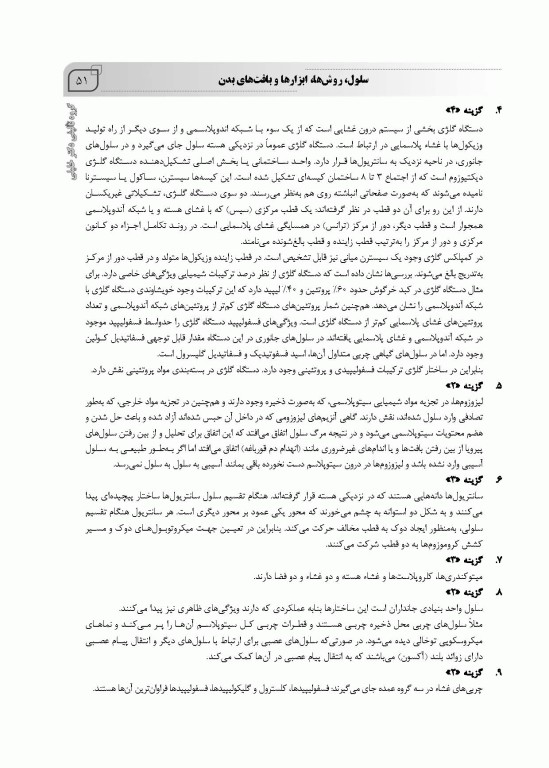 سلول، روش‌ها، ابزارها و بافت‌های بدن
۵۱
گروه تألیفی دکتر خلیلی
۴. گزینه «۴»
دستگاه گلژی بخشی از سیستم درون غشایی است که از یک سوء با شبکه اندوپلاسمی و از سوی دیگر از راه تولید
وزیکول‌ها با غشاء پلاسمایی در ارتباط است. دستگاه گلژی عموماً در نزدیکی هسته سلول جای می‌گیرد و در سلول‌های
جانوری، در ناحیه نزدیک به سانتریول‌ها قرار دارد. واحد ساختمانی یا بخش اصلی تشکیل‌دهنده دستگاه گلژی
دیکتیوزوم است که از اجتماع ۳ تا ۸ ساختمان کیسه‌ای تشکیل شده است. این کیسه‌ها سیسترن، ساکول یا سیسترنا
نامیده می‌شوند که به‌صورت صفحاتی انباشته روی هم به‌نظر می‌رسند. دو سوی دستگاه گلژی، تشکیلاتی غیریکسان
دارند. از این رو برای آن دو قطب در نظر گرفته‌اند: یک قطب مرکزی (سیس) که با غشای هسته و یا شبکه آندوپلاسمی
همجوار است و قطب دیگر، دور از مرکز (ترانس) در همسایگی غشای پلاسمایی است. در روند تکامل اجزاء دو کانون
مرکزی و دور از مرکز را به‌ترتیب قطب زاینده و قطب بالغ‌شونده می‌نامند.
در کمپلکس گلژی وجود یک سیسترن میانی نیز قابل تشخیص است. در قطب زاینده وزیکول‌ها متولد و در قطب دور از مرکز
به‌تدریج بالغ می‌شوند. بررسی‌ها نشان داده است که دستگاه گلژی از نظر درصد ترکیبات شیمیایی ویژگی‌های خاصی دارد. برای
مثال دستگاه گلژی در کبد خرگوش حدود ۶۰٪ پروتئین و ۴۰٪ لیپید دارد که این ترکیبات وجود خویشاوندی دستگاه گلژی با
شبکه آندوپلاسمی را نشان می‌دهد. هم‌چنین شمار پروتئین‌های دستگاه گلژی کم‌تر از پروتئین‌های شبکه آندوپلاسمی و تعداد
پروتئین‌های غشای پلاسمایی کم‌تر از دستگاه گلژی است. ویژگی‌های فسفولیپید دستگاه گلژی را حدواسط فسفولیپید موجود
در شبکه آندوپلاسمی و غشای پلاسمایی یافته‌اند. در سلول‌های جانوری در این دستگاه مقدار قابل توجهی فسفاتیدیل کولین
وجود دارد. اما در سلول‌های گیاهی چربی متداول آن‌ها، اسید فسفوتیدیک و فسفاتیدیل گلیسرول است.
بنابراین در ساختار گلژی ترکیبات فسفولیپیدی و پروتئینی وجود دارد. دستگاه گلژی در بسته‌بندی مواد پروتئینی نقش دارد.
۵. گزینه «۲»
لیزوزوم‌ها، در تجزیه مواد شیمیایی سیتوپلاسمی، که به‌صورت ذخیره وجود دارند و هم‌چنین در تجزیه مواد خارجی، که به‌طور
تصادفی وارد سلول شده‌اند، نقش دارند. گاهی آنزیم‌های لیزوزومی که در داخل آن حبس شده‌اند آزاد شده و باعث حل شدن و
هضم محتویات سیتوپلاسمی می‌شود و در نتیجه مرگ سلول اتفاق می‌افتد که این اتفاق برای تحلیل و از بین رفتن سلول‌های
پیرویا از بین رفتن بافت‌ها و یا اندام‌های غیرضروری مانند (انهدام دم قورباغه) اتفاق می‌افتد اما اگر به‌طور طبیعی به سلول
آسیبی وارد نشده باشد و لیزوزوم‌ها در درون سیتوپلاسم دست نخورده باقی بمانند آسیبی به سلول به سلول نمی‌رسد.
۶. گزینه «۳»
سانتریول‌ها دانه‌هایی هستند که در نزدیکی هسته قرار گرفته‌اند. هنگام تقسیم سلول سانتریول‌ها ساختار پیچیده‌ای پیدا
می‌کنند و به شکل دو استوانه به چشم می‌خورند که محور یکی عمود بر محور دیگری است. هر سانتریول هنگام تقسیم
سلولی، به‌منظور ایجاد دوک به قطب مخالف حرکت می‌کند. بنابراین در تعیین جهت میکروتوبول‌های دوک و مسیر
کشش کروموزوم‌ها به دو قطب شرکت می‌کنند.
۷. گزینه «۳»
میتوکندری‌ها، کلروپلاست‌ها و غشاء هسته و دو غشاء و دو فضا دارند.
۸. گزینه «۲»
سلول واحد بنیادی جانداران است این ساختارها بنابه عملکردی که دارند ویژگی‌های ظاهری نیز پیدا می‌کنند.
مثلاً سلول‌های چربی محل ذخیره چربی هستند و قطرات چربی کل سیتوپلاسم آن‌ها را پر می‌کند و نماهای
میکروسکوپی توخالی دیده می‌شود. در صورتی‌که سلول‌های عصبی برای ارتباط با سلول‌های دیگر و انتقال پیام عصبی
دارای زوائد بلند (آکسون) می‌باشند که به انتقال پیام عصبی در آن‌ها کمک می‌کند.
۹. گزینه «۳»
چربی‌های غشاء در سه گروه عمده جای می‌گیرند: فسفولیپیدها، کلسترول و گلیکولیپیدها، فسفولیپیدها فراوان‌ترین آن‌ها هستند.